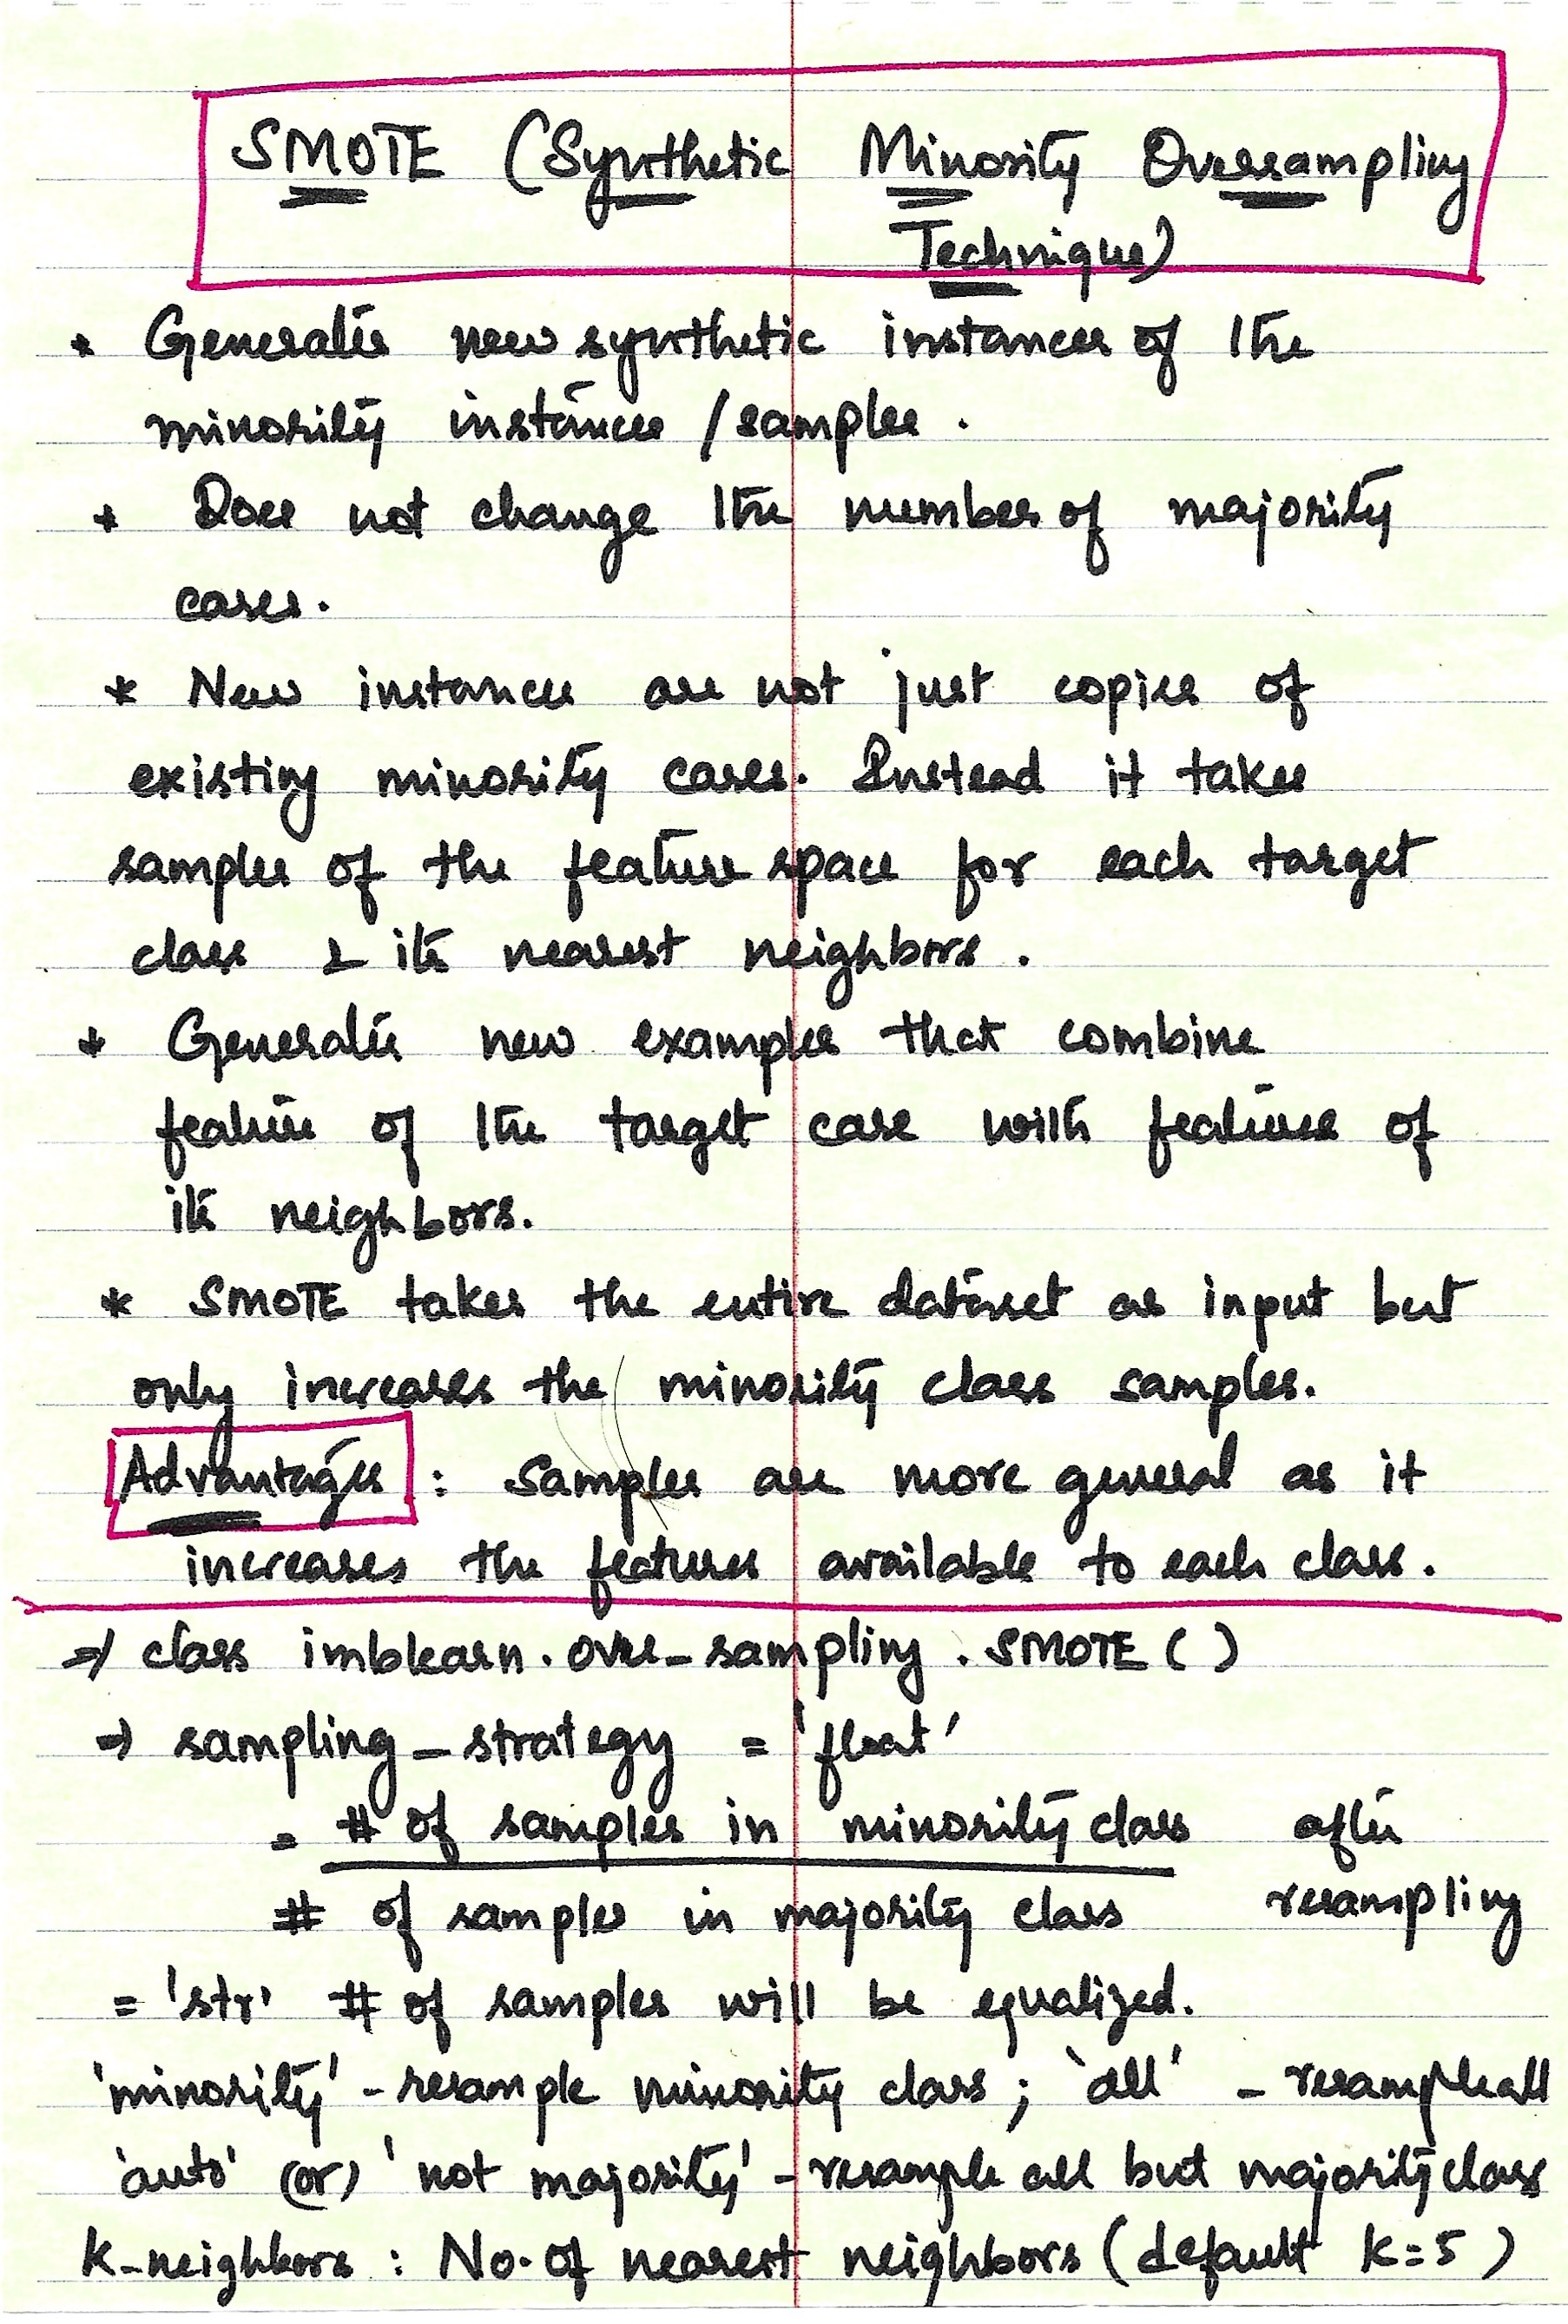 SMOTE (Synthetic Minority Oversampling
Technique)
* Generates new synthetic instances of the
minority instances / samples.
* Does not change the number of majority
cases.
* New instances are not just copies of
existing minority cases. Instead it takes
samples of the feature space for each target
class & its nearest neighbors.
* Generates new examples that combine
features of the target case with features of
its neighbors.
* SMOTE takes the entire dataset as input but
only increases the minority class samples.
Advantages : Samples are more general as it
increases the features available to each class.
⇒ class imblearn.over_sampling.SMOTE()
⇒ sampling_strategy = 'float'
= # of samples in minority class after
# of samples in majority class resampling
= 'str' # of samples will be equalized.
'minority' - resample minority class ; 'all' - resample all
'auto' (or) 'not majority' - resample all but majority class
k-neighbors : No. of nearest neighbors (default k=5)